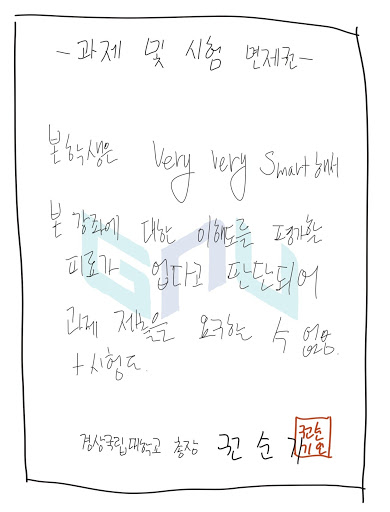 -과제 및 시험 면제권-
본 학생은 Very very Smart해서
본 강좌에 대한 이해도를 평가할
피료가 업다고 판단되어
과제 제출을 요구할 수 없음.
+시험도
경상국립대학교 총장 권 순 기
권순
기인
GNU